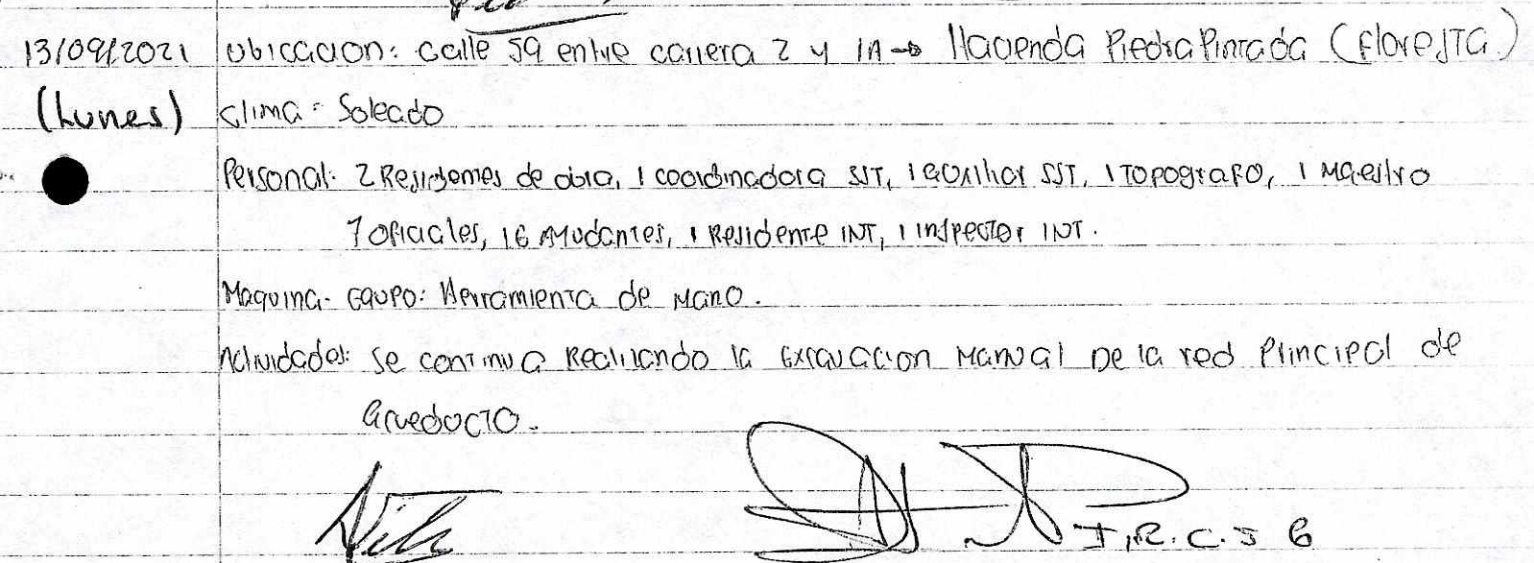 13/09/2021 Ubicacion: calle 59 entre carrera 2 y 1A → Hacienda Piedra Pintada (FloresTa)
(Lunes) Clima: Soleado
Personal: 2 Residentes de obra, 1 coordinadora SST, 1 auxiliar SST, 1 Topografo, 1 Maestro
7 oficiales, 16 Ayudantes, 1 Residente INT, 1 inspector INT.
Maquina- Equipo: Herramienta de Mano.
Actividades: se continua Realizando la Excavacion Manual De la red Principal de
acueducto.
I,R.C.J B